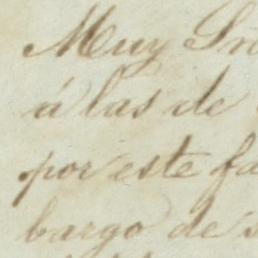 Muy Sr
á las de
por este fa
bargo de s